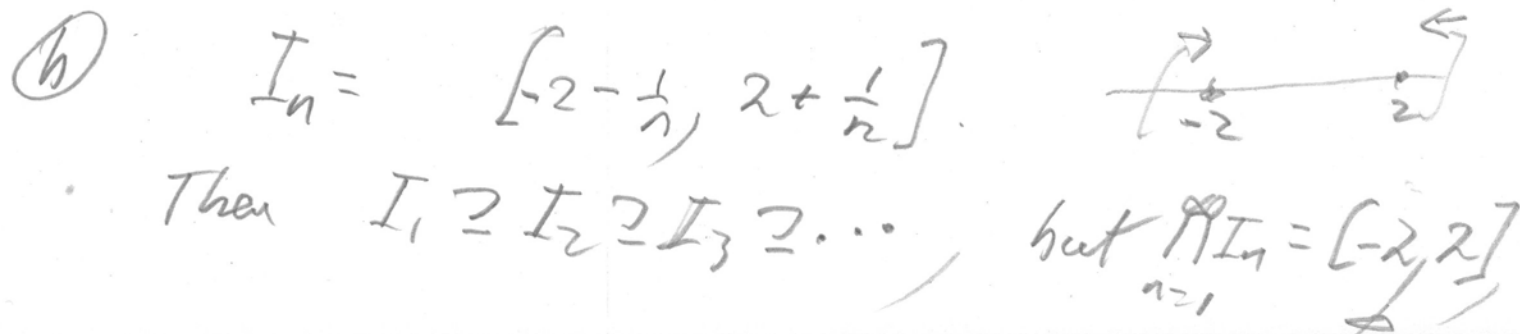 (b) I_n = [-2 - 1/n, 2 + 1/n]. -2 2
Then I_1 ⊇ I_2 ⊇ I_3 ⊇ ..., but ∩_{n=1}^∞ I_n = [-2, 2],